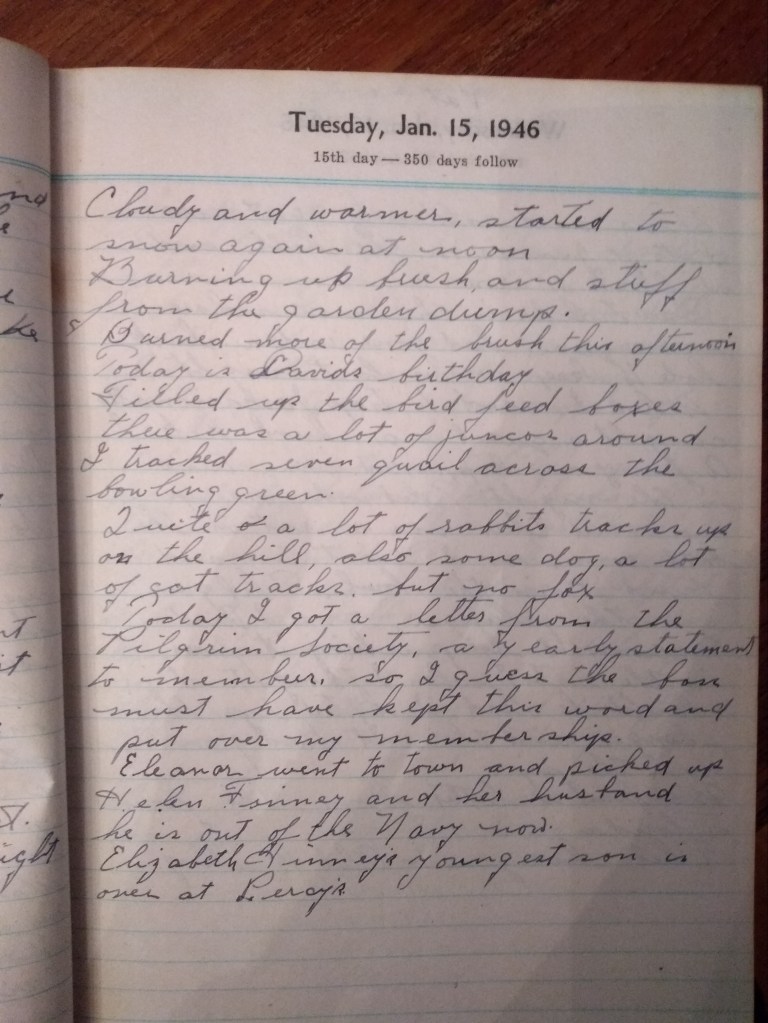 Tuesday, Jan. 15, 1946
15th day — 350 days follow
Cloudy and warmer, started to
snow again at noon
Burning up brush, and stuff
from the garden dump.
Burned more of the brush this afternoon
Today is Davids birthday
Filled up the bird feed boxes
there was a lot of juncos around
I tracked seven quail across the
bowling green.
Quite a lot of rabbits tracks up
on the hill, also some dog, a lot
of cat tracks. but no fox
Today I got a letter from the
Pilgrim Society, a yearly statement
to member. so I guess the boss
must have kept this word and
put over my member ship.
Eleanor went to town and picked up
Helen Finney and her husband
he is out of the Navy now.
Elizabeth Kinney's youngest son is
over at Percy's